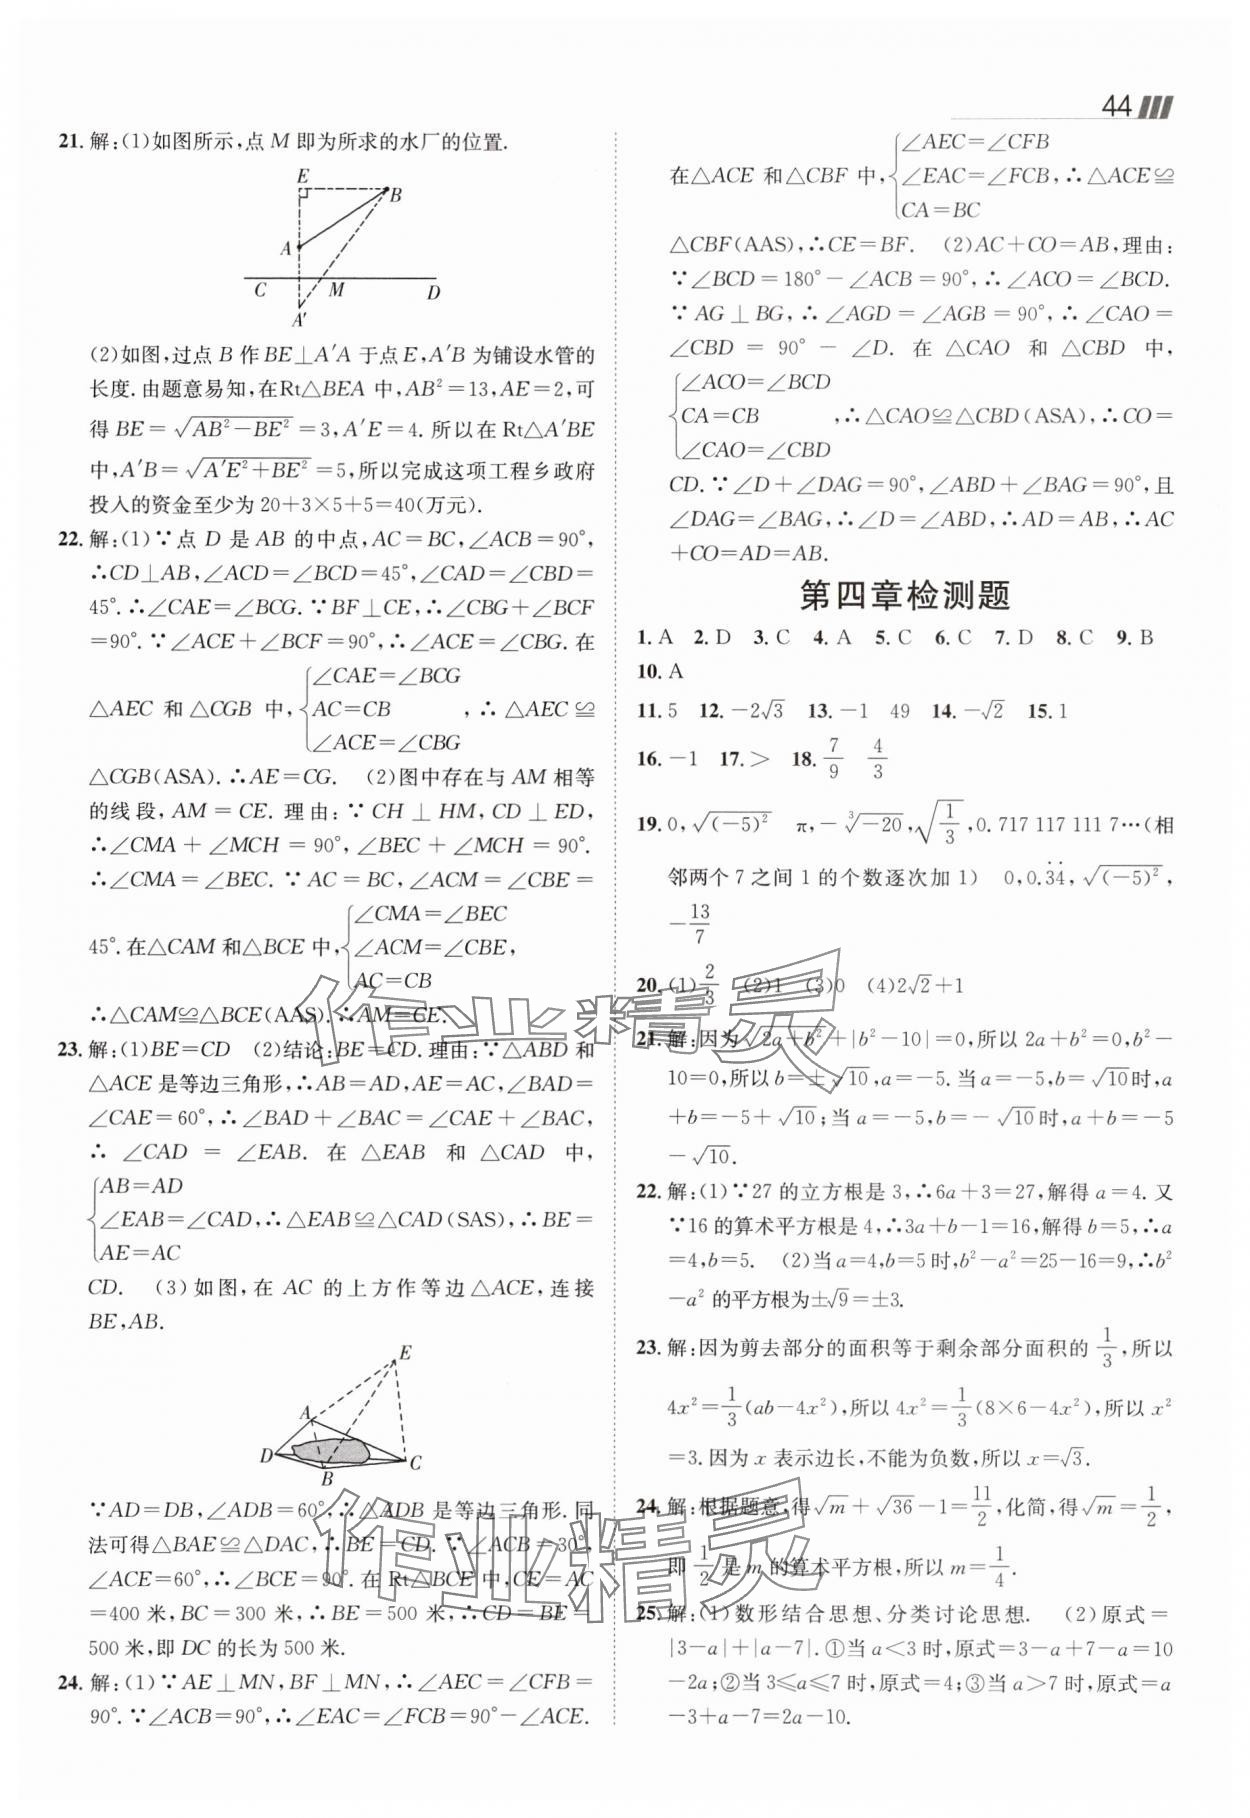 44
21. 解:(1)如图所示,点 M 即为所求的水厂的位置.
E
B
A
C M D
A′
(2)如图,过点 B 作 BE⊥A′A 于点 E,A′B 为铺设水管的
长度.由题意易知,在Rt△BEA 中,AB²=13,AE=2,可
得 BE=√(AB²−BE²)=3,A′E=4. 所以在 Rt△A′BE
中,A′B=√(A′E²+BE²)=5,所以完成这项工程乡政府
投入的资金至少为 20+3×5+5=40(万元).
22. 解:(1)∵点 D 是 AB 的中点,AC=BC,∠ACB=90°,
∴CD⊥AB,∠ACD=∠BCD=45°,∠CAD=∠CBD=
45°.∴∠CAE=∠BCG.∵BF⊥CE,∴∠CBG+∠BCF
=90°.∵∠ACE+∠BCF=90°,∴∠ACE=∠CBG.在
△AEC 和△CGB 中,{∠CAE=∠BCG
AC=CB ,∴△AEC≌
∠ACE=∠CBG
△CGB(ASA).∴AE=CG. (2)图中存在与 AM 相等
的线段,AM=CE.理由:∵CH⊥HM,CD⊥ED,
∴∠CMA+∠MCH=90°,∠BEC+∠MCH=90°.
∴∠CMA=∠BEC.∵AC=BC,∠ACM=∠CBE=
45°.在△CAM 和△BCE 中,{∠CMA=∠BEC
∠ACM=∠CBE,
AC=CB
∴△CAM≌△BCE(AAS).∴AM=CE.
23. 解:(1)BE=CD (2)结论:BE=CD.理由:∵△ABD 和
△ACE 是等边三角形,∴AB=AD,AE=AC,∠BAD=
∠CAE=60°,∴∠BAD+∠BAC=∠CAE+∠BAC,
∴∠CAD=∠EAB.在△EAB 和△CAD 中,
{AB=AD
∠EAB=∠CAD,∴△EAB≌△CAD(SAS),∴BE=
AE=AC
CD. (3)如图,在 AC 的上方作等边△ACE,连接
BE,AB.
E
A
D
B
C
∵AD=DB,∠ADB=60°,∴△ADB 是等边三角形.同
法可得△BAE≌△DAC,∴BE=CD.∵∠ACB=30°,
∠ACE=60°,∴∠BCE=90°.在 Rt△BCE 中,CE=AC
=400 米,BC=300 米,∴BE=500 米,∴CD=BE=
500 米,即 DC 的长为 500 米.
24. 解:(1)∵AE⊥MN,BF⊥MN,∴∠AEC=∠CFB=
90°.∵∠ACB=90°,∴∠EAC=∠FCB=90°−∠ACE.
在△ACE 和△CBF 中,{∠AEC=∠CFB
∠EAC=∠FCB,∴△ACE≌
CA=BC
△CBF(AAS),∴CE=BF. (2)AC+CO=AB,理由:
∵∠BCD=180°−∠ACB=90°,∴∠ACO=∠BCD.
∵AG⊥BG,∴∠AGD=∠AGB=90°,∴∠CAO=
∠CBD=90°−∠D.在△CAO 和△CBD 中,
{∠ACO=∠BCD
CA=CB ,∴△CAO≌△CBD(ASA),∴CO=
∠CAO=∠CBD
CD.∵∠D+∠DAG=90°,∠ABD+∠BAG=90°,且
∠DAG=∠BAG,∴∠D=∠ABD,∴AD=AB,∴AC
+CO=AD=AB.
第四章检测题
1. A 2. D 3. C 4. A 5. C 6. C 7. D 8. C 9. B
10. A
11. 5 12. −2√3 13. −1 49 14. −√2 15. 1
16. −1 17. > 18. 7/9 4/3
19. 0,√(−5)² π,−∛−20,√(1/3),0.717 117 111 7…(相
邻两个 7 之间 1 的个数逐次加 1) 0,0.3̇4̇,√(−5)²,
−13/7
20. (1)2/3 (2)1 (3)0 (4)2√2+1
21. 解:因为√(2a+b²)+|b²−10|=0,所以 2a+b²=0,b²−
10=0,所以 b=±√10,a=−5.当 a=−5,b=√10时,a
+b=−5+√10;当 a=−5,b=−√10时,a+b=−5
−√10.
22. 解:(1)∵27 的立方根是 3,∴6a+3=27,解得 a=4. 又
∵16 的算术平方根是 4,∴3a+b−1=16,解得 b=5,∴a
=4,b=5. (2)当 a=4,b=5 时,b²−a²=25−16=9,∴b²
−a² 的平方根为±√9=±3.
23. 解:因为剪去部分的面积等于剩余部分面积的 1/3,所以
4x²=1/3(ab−4x²),所以 4x²=1/3(8×6−4x²),所以 x²
=3.因为 x 表示边长,不能为负数,所以 x=√3.
24. 解:根据题意,得√m+√36−1=11/2,化简,得√m=1/2,
即 1/2 是 m 的算术平方根,所以 m=1/4.
25. 解:(1)数形结合思想、分类讨论思想. (2)原式=
|3−a|+|a−7|.①当 a<3 时,原式=3−a+7−a=10
−2a;②当 3≤a≤7 时,原式=4;③当 a>7 时,原式=a
−3+a−7=2a−10.
作业精灵
作业精灵